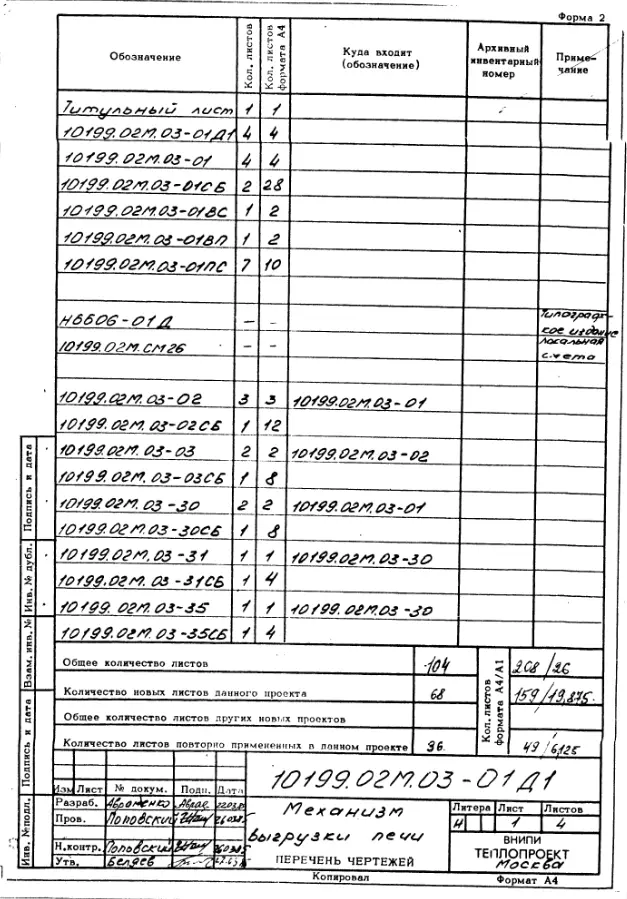 Форма 2
Обозначение Кол. листов Кол. листов формата А4 Куда входит (обозначение) Архивный инвентарный номер Приме-чание
Титульный лист 1 1
10199.02М.03-01Д1 4 4
10199.02М.03-01 4 4
10199.02М.03-01СБ 2 28
10199.02М.03-01ВС 1 2
10199.02М.03-01ВП 1 2
10199.02М.03-01ПС 7 10
Н6606-01Д — — Типограф-
ское издание
10199.02М.СМ26 — — локальная
смета
10199.02М.03-02 3 3 10199.02М.03-01
10199.02М.03-02СБ 1 12
10199.02М.03-03 2 2 10199.02М.03-02
10199.02М.03-03СБ 1 8
10199.02М.03-30 2 2 10199.02М.03-01
10199.02М.03-30СБ 1 8
10199.02М.03-31 1 1 10199.02М.03-30
10199.02М.03-31СБ 1 4
10199.02М.03-35 1 1 10199.02М.03-30
10199.02М.03-35СБ 1 4
Общее количество листов 104 Кол.листов формата А4/А1 208/26
Количество новых листов данного проекта 68 159/19,875
Общее количество листов других новых проектов
Количество листов повторно примененных в данном проекте 36 49/6,125
10199.02М.03-01Д1
Изм Лист № докум. Подп. Дата
Разраб. Авраменко
Пров. Поповский
Н.контр. Поповский
Утв. Беляев
Механизм
выгрузки печи
ПЕРЕЧЕНЬ ЧЕРТЕЖЕЙ
Литера Лист Листов
И 1 4
ВНИПИ
ТЕПЛОПРОЕКТ
Москва
Копировал Формат А4
Подпись и дата
Инв. № дубл.
Взам. инв. №
Подпись и дата
Инв. №подл.